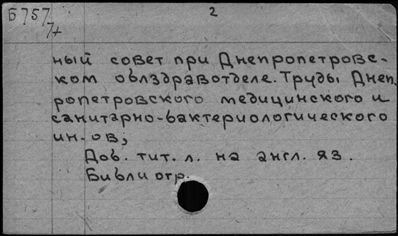 Б 757 2
7+
ный совет при Днепропетровс-
ком облздравотделе. Труды Днеп
ропетровского медицинского и
санитарно-бактериологического
ин-ов;
Доб. тит. л. на англ. яз.
Библиогр.